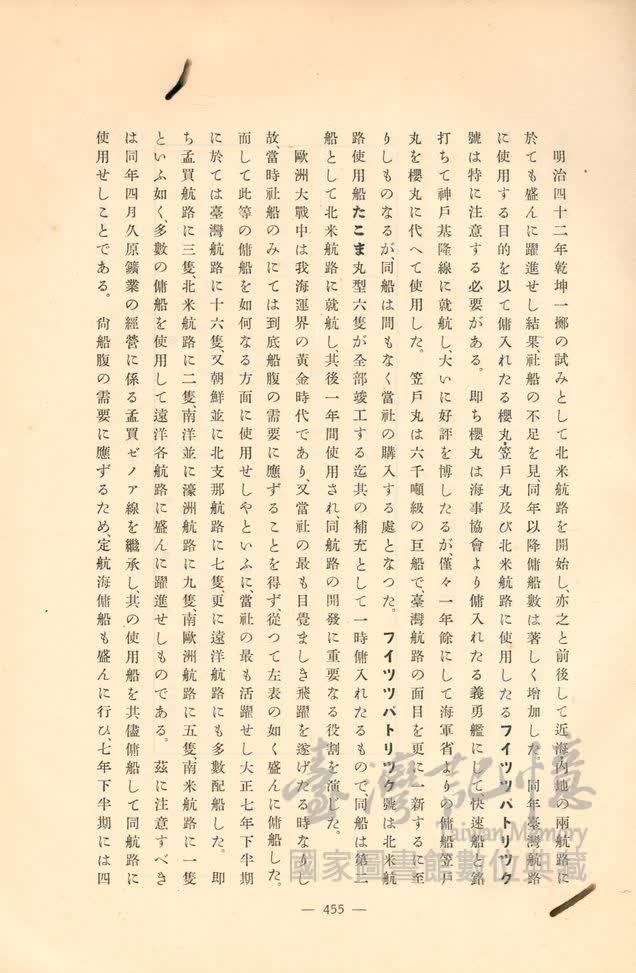 明治四十二年乾坤一擲の試みとして北米航路を開始し、亦之と前後して近海、內地の兩航路に
於ても盛んに躍進せし結果、社船の不足を見、同年以降傭船數は著しく增加した。同年臺灣航路
に使用する目的を以て傭入れたる櫻丸、笠戶丸及び北米航路に使用したるフイツツパトリツク
號は特に注意する必要がある。卽ち櫻丸は海事協會より傭入れたる義勇艦にして快速船と銘
打ちて神戶基隆線に就航し、大いに好評を博したるが、僅々一年餘にして海軍省よりの傭船笠戶
丸を櫻丸に代へて使用した。笠戶丸は六千噸級の巨船で、臺灣航路の面目を更に一新するに至
りしものなるが、同船は間もなく當社の購入する處となつた。フイツツパトリツク號は北米航
路使用船たこま丸型六隻が全部竣工する迄其の補充として一時傭入れたるもので、同船は第二
船として北米航路に就航し、其後一年間使用され、同航路の開發に重要なる役割を演じた。
歐洲大戰中は我海運界の黃金時代であり、又當社の最も目覺ましき飛躍を遂げたる時なりし
故、當時社船のみにては到底船腹の需要に應ずることを得ず、從つて左表の如く盛んに傭船した。
而して此等の傭船を如何なる方面に使用せしやといふに、當社の最も活躍せし大正七年下半期
に於ては臺灣航路に十六隻、又朝鮮並に北支那航路に七隻、更に遠洋航路にも多數配船した。卽
ち孟買航路に三隻、北米航路に二隻、南洋並に濠洲航路に九隻、南歐洲航路に五隻、南米航路に一隻
といふ如く、多數の傭船を使用して遠洋各航路に盛んに躍進せしものである。茲に注意すべき
は同年四月久原鑛業の經營に係る孟買ゼノア線を繼承し、其の使用船を其儘傭船して同航路に
使用せしことである。尙船腹の需要に應ずるため、定航海傭船も盛んに行ひ、七年下半期には四
— 455 —
臺灣記憶
Taiwan Memory
國家圖書館數位典藏